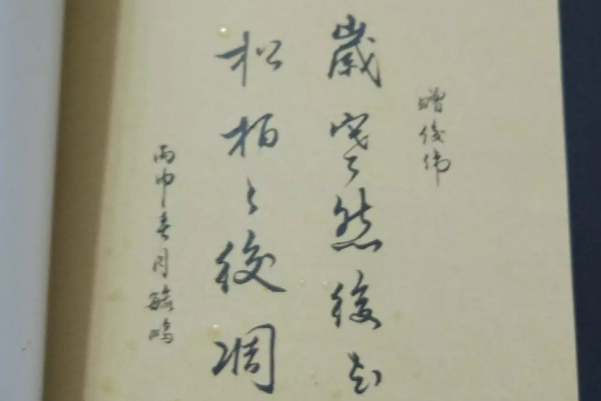 贈俊偉
歲寒然後知
松柏之後凋
丙申春月毓